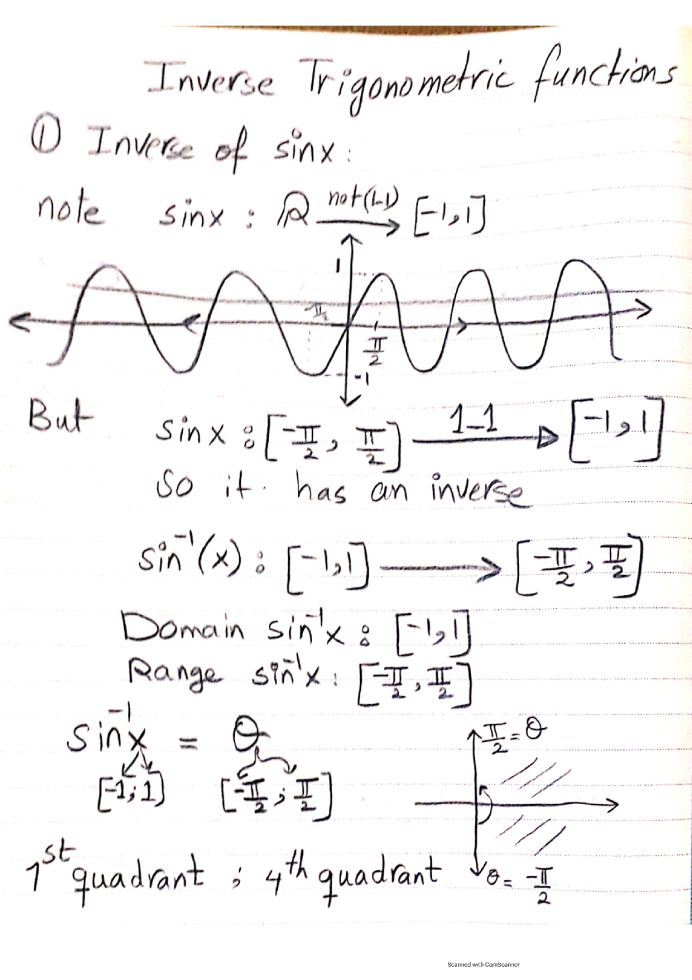 Inverse Trigonometric functions
① Inverse of sinx:
note sinx : ℝ not(1-1)→ [-1,1]
1
-π/2
π/2
-1
But sinx : [-π/2, π/2] 1-1→ [-1,1]
So it has an inverse
sin⁻¹(x) : [-1,1] → [-π/2, π/2]
Domain sin⁻¹x : [-1,1]
Range sin⁻¹x : [-π/2, π/2]
sin⁻¹x = θ
[-1,1] [-π/2, π/2]
π/2 = θ
1st quadrant ; 4th quadrant
θ = -π/2
Scanned with CamScanner